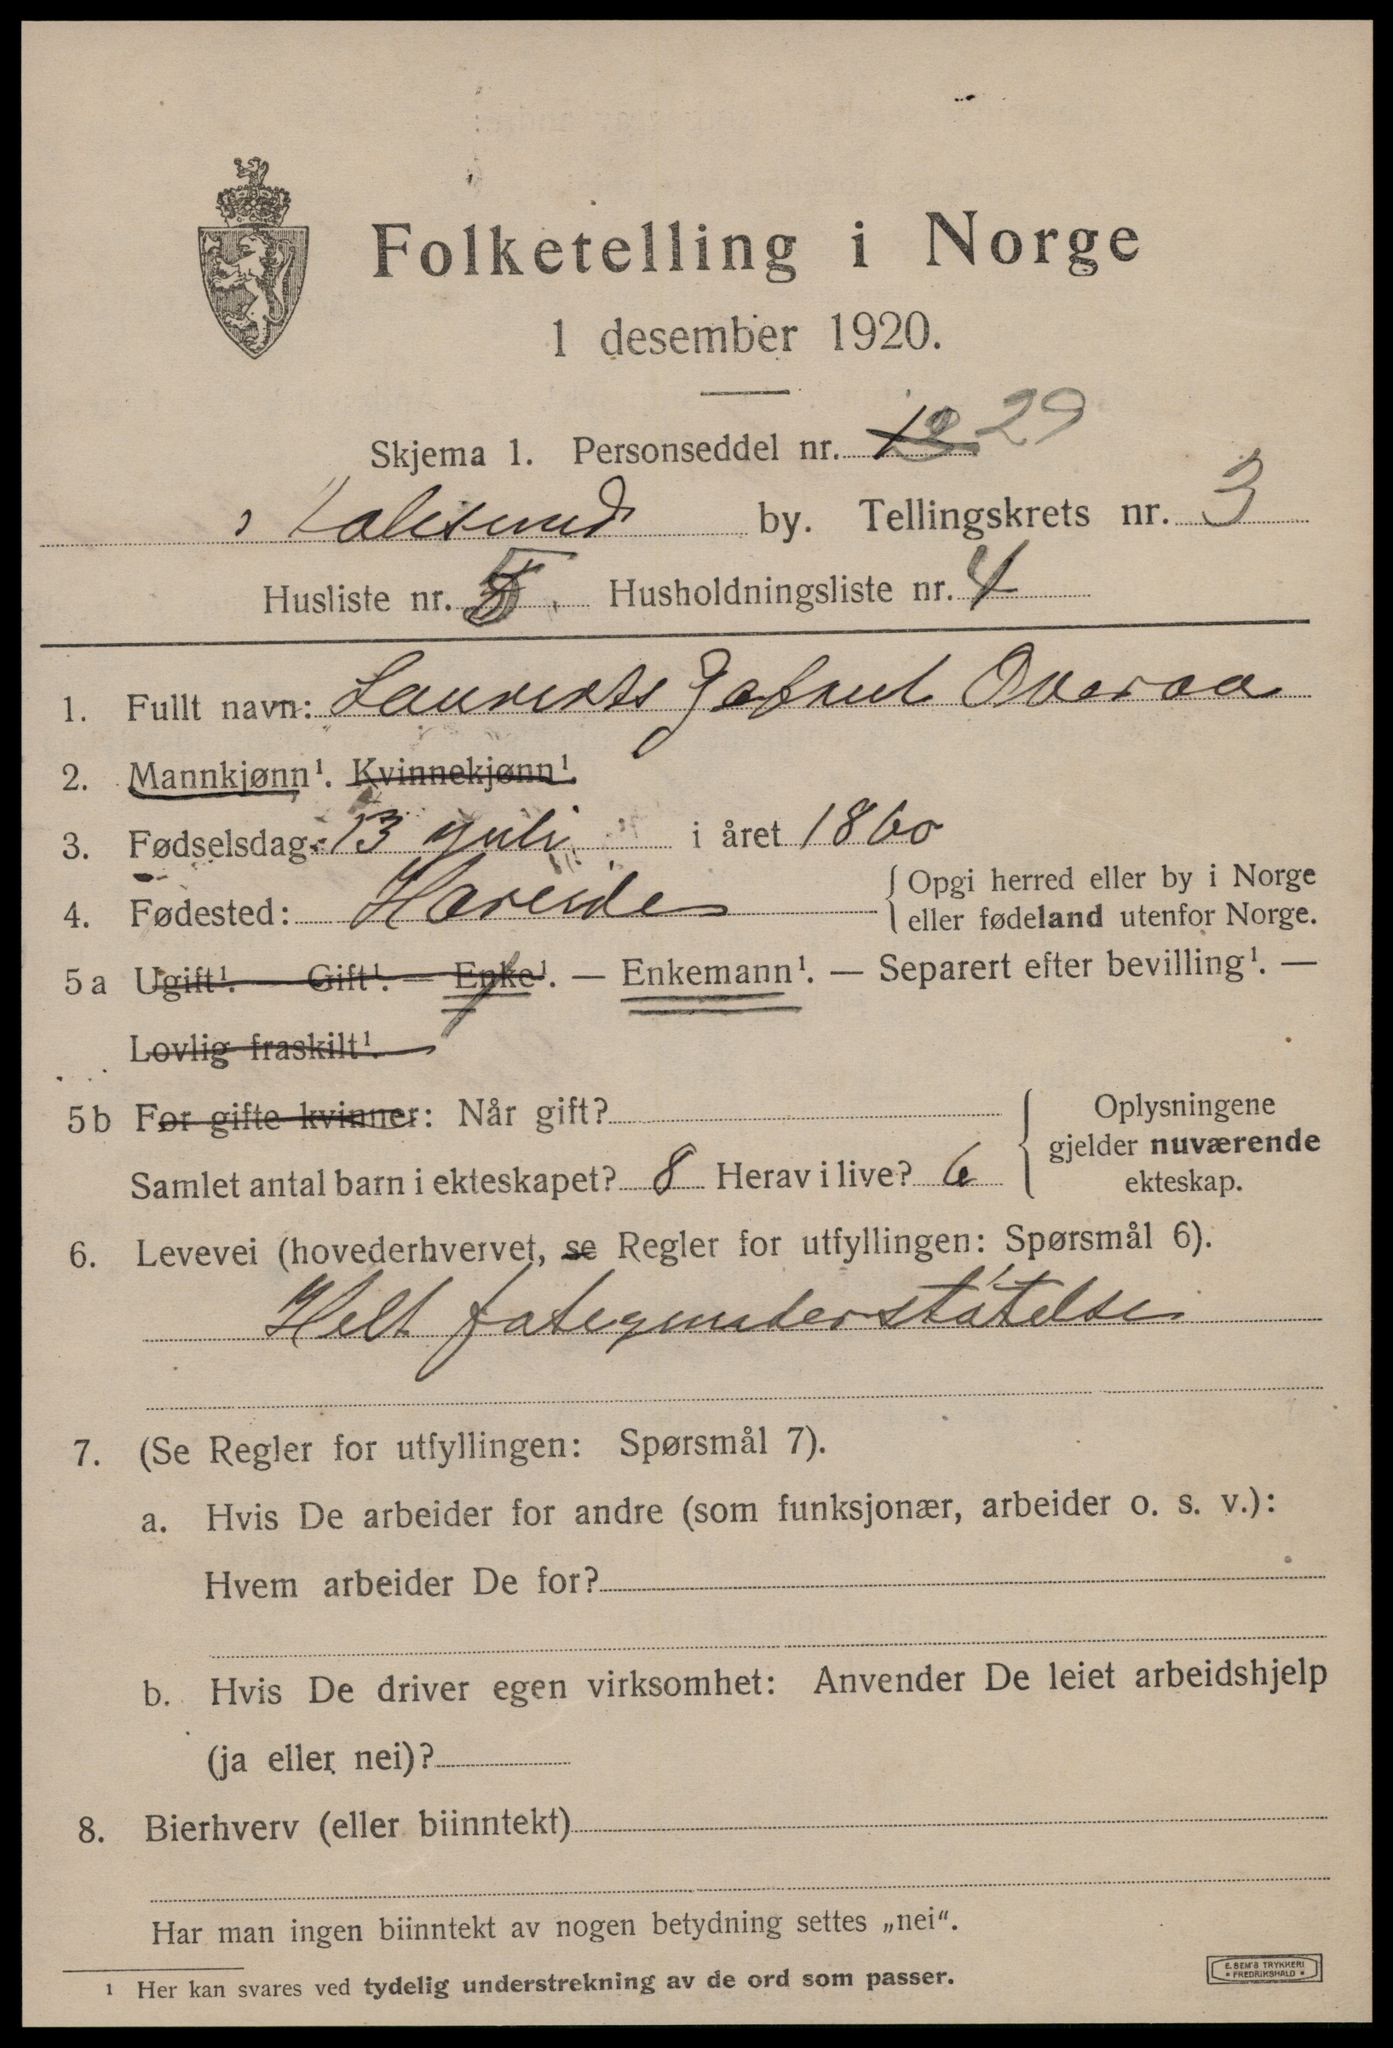 Folketelling i Norge
1 desember 1920.
Skjema 1. Personseddel nr. 13 29
Aalesund by. Tellingskrets nr. 3
Husliste nr. 5. Husholdningsliste nr. 4
1. Fullt navn: Laurits Overaa
2. Mannkjønn¹. Kvinnekjønn¹.
3. Fødselsdag: 13 juli i året 1860
4. Fødested: Hareide { Opgi herred eller by i Norge
eller fødeland utenfor Norge.
5 a Ugift¹. — Gift¹. — Enke¹. — Enkemann¹. — Separert efter bevilling¹. —
Lovlig fraskilt¹.
5 b For gifte kvinner: Når gift?
Samlet antal barn i ekteskapet? 8 Herav i live? 6
{ Oplysningene
gjelder nuværende
ekteskap.
6. Levevei (hovederhvervet, se Regler for utfyllingen: Spørsmål 6).
Helt fatigunderstøtelse
7. (Se Regler for utfyllingen: Spørsmål 7).
a. Hvis De arbeider for andre (som funksjonær, arbeider o. s. v.):
Hvem arbeider De for?
b. Hvis De driver egen virksomhet: Anvender De leiet arbeidshjelp
(ja eller nei)?
8. Bierhverv (eller biinntekt)
Har man ingen biinntekt av nogen betydning settes „nei“.
¹ Her kan svares ved tydelig understrekning av de ord som passer.
E. SEM'S TRYKKERI
* FREDRIKSHALD *